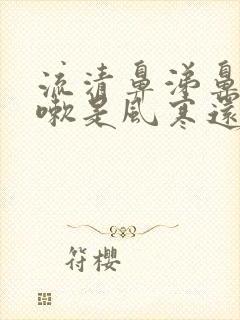 流清鼻涕鼻
嗽是风寒还
符樱